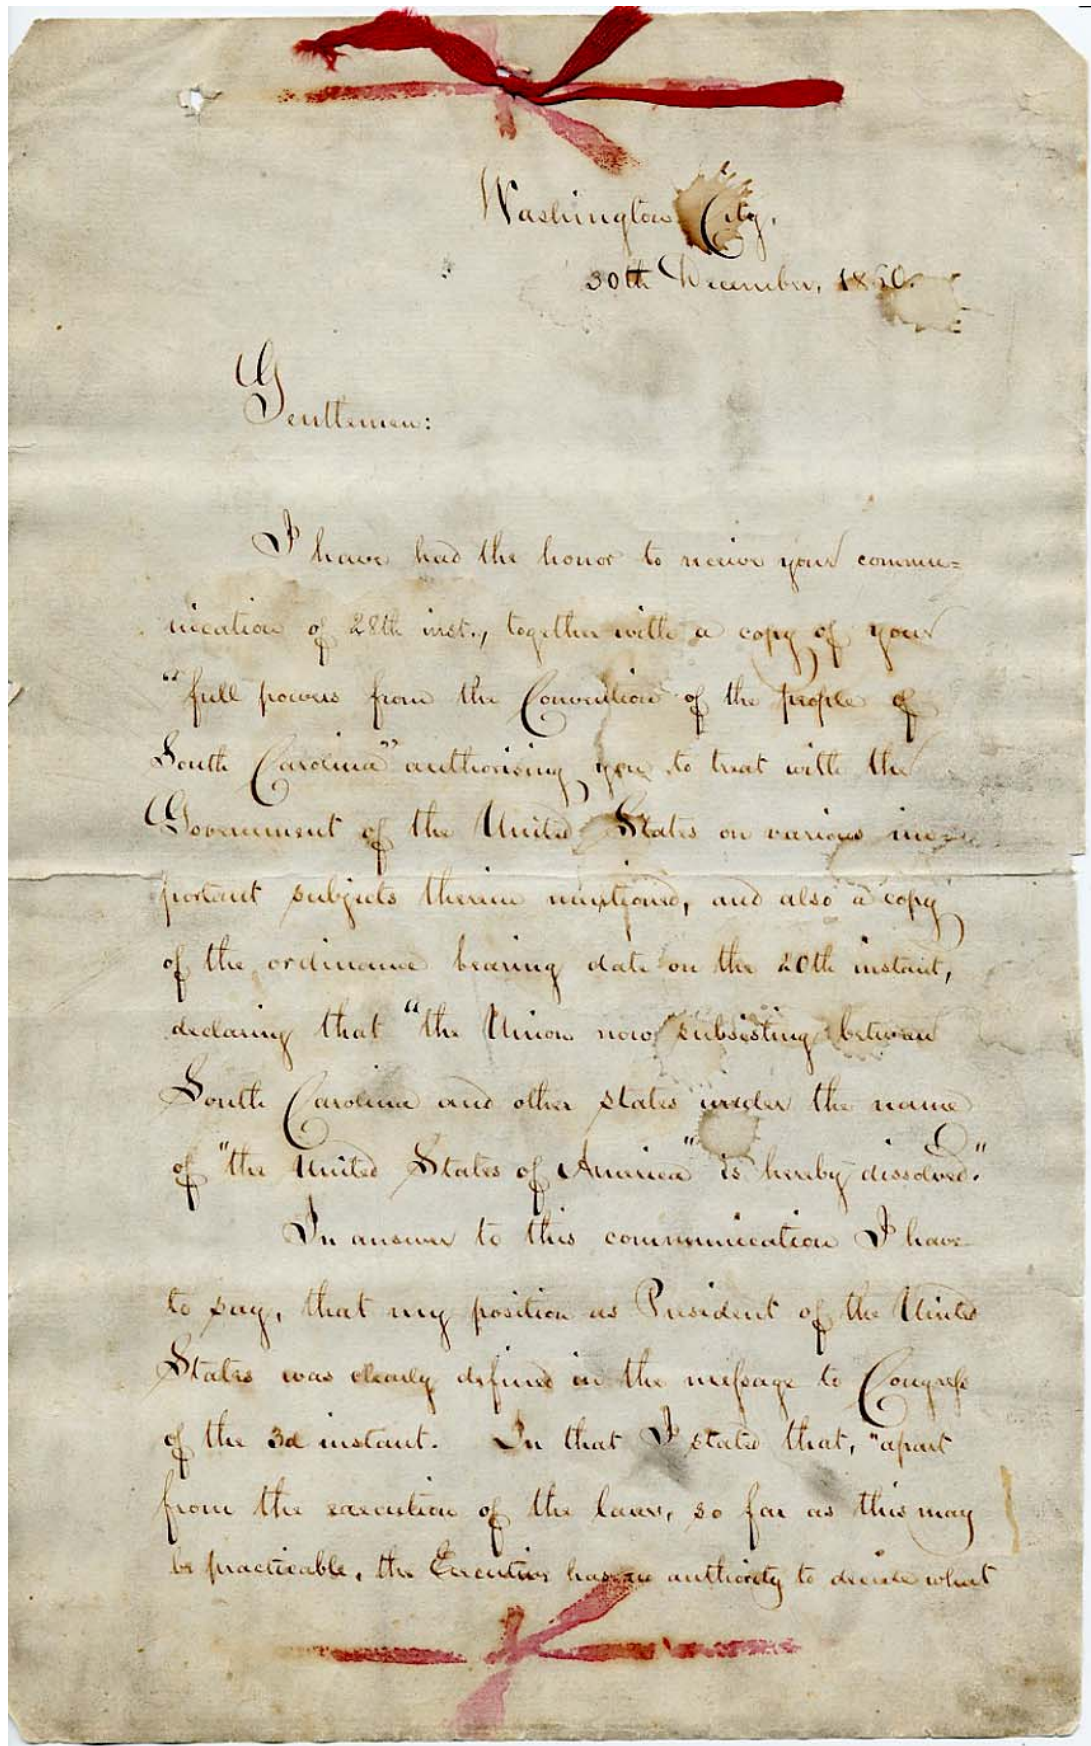 Washington City,
30th December, 1860.
Gentlemen:
I have had the honor to receive your commu=
nication of 28th inst., together with a copy of your
"full powers from the Convention of the people of
South Carolina" authorising you to treat with the
Government of the United States on various im=
portant subjects therein mentioned, and also a copy
of the ordinance bearing date on the 20th instant,
declaring that "the Union now subsisting between
South Carolina and other states under the name
of "the United States of America" is hereby dissolved."
In answer to this communication I have
to say, that my position as President of the United
States was clearly defined in the message to Congress
of the 3d instant. In that I stated that, "apart
from the execution of the laws, so far as this may
be practicable, the Executive has no authority to decide what